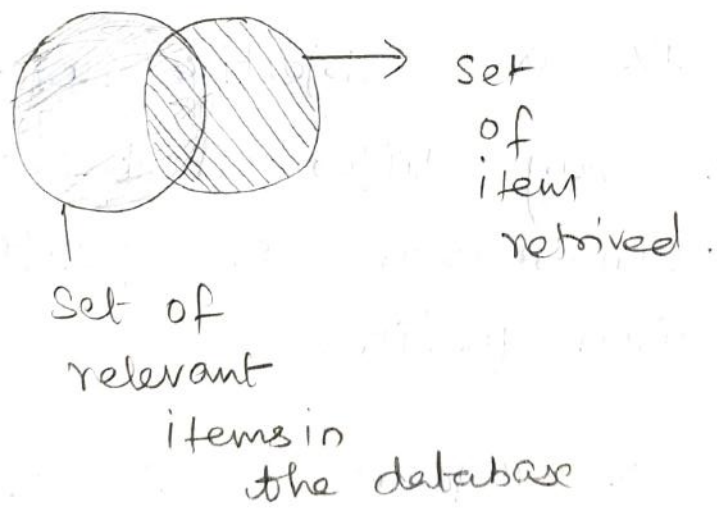 Set
of
item
retrived.
Set of
relevant
items in
the database